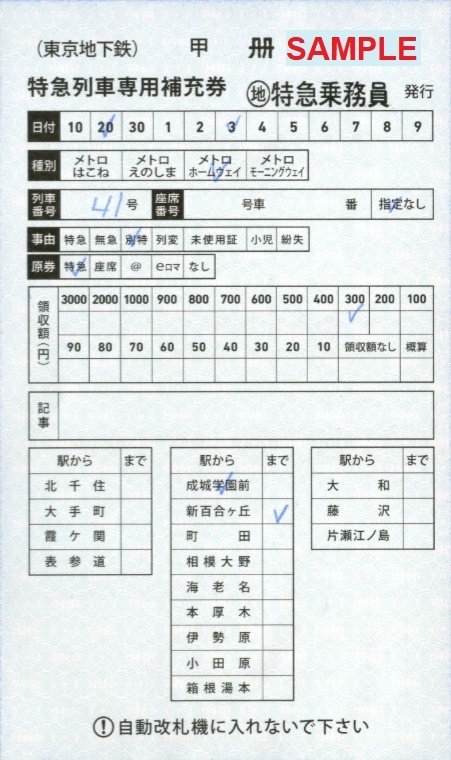 (東京地下鉄) 甲 冊 SAMPLE
特急列車専用補充券 地特急乗務員 発行
日付 10 20 30 1 2 3 4 5 6 7 8 9
種別 メトロはこね メトロえのしま メトロホームウェイ メトロモーニングウェイ
列車番号 41号 座席番号 号車 番 指定なし
事由 特急 無急 別特 列変 未使用証 小児 紛失
原券 特急 座席 @ eロマ なし
領収額(円) 3000 2000 1000 900 800 700 600 500 400 300 200 100
90 80 70 60 50 40 30 20 10 領収額なし 概算
記事
駅から まで
北千住
大手町
霞ケ関
表参道
駅から まで
成城学園前
新百合ヶ丘
町田
相模大野
海老名
本厚木
伊勢原
小田原
箱根湯本
駅から まで
大和
藤沢
片瀬江ノ島
!自動改札機に入れないで下さい